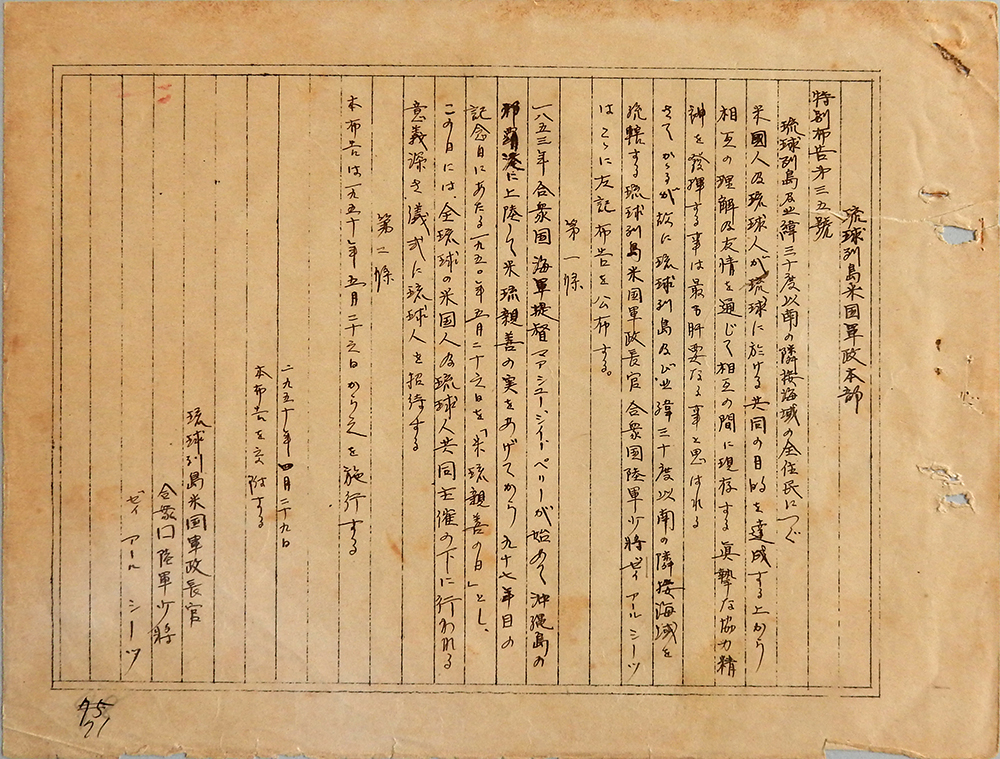 琉球列島米国軍政本部
特別布告第三五號
琉球列島及北緯三十度以南の隣接海域の全住民につぐ
米國人及琉球人が琉球に於ける共同の目的を達成する上から
相互の理解及友情を通じて相互の間に現存する眞摯な協力精
神を發揮する事は最も肝要なる事と思はれる
さて かゝるが故に琉球列島及び北緯三十度以南の隣接海域を
統轄する琉球列島米国軍政長官 合衆国陸軍少將ゼイ アール シーツ
はこゝに左記布告を公布する。
第一條
一八五三年 合衆国 海軍提督マアシュー・シイ・ペリーが始めて沖縄島の
那覇港に上陸して米琉親善の実をあげてから 九十七年目の
記念日にあたる一九五〇年五月二十六日を「米琉親善の日」とし、
この日には全琉球の米国人及琉球人共同主催の下に行われる
意義深き儀式に琉球人を招待する
第二條
本布告は一九五十年五月二十六日から之を施行する
一九五十年四月二十九日
本布告を交附する
琉球列島米国軍政長官
合衆囗陸軍少將
ゼイ アール シーツ